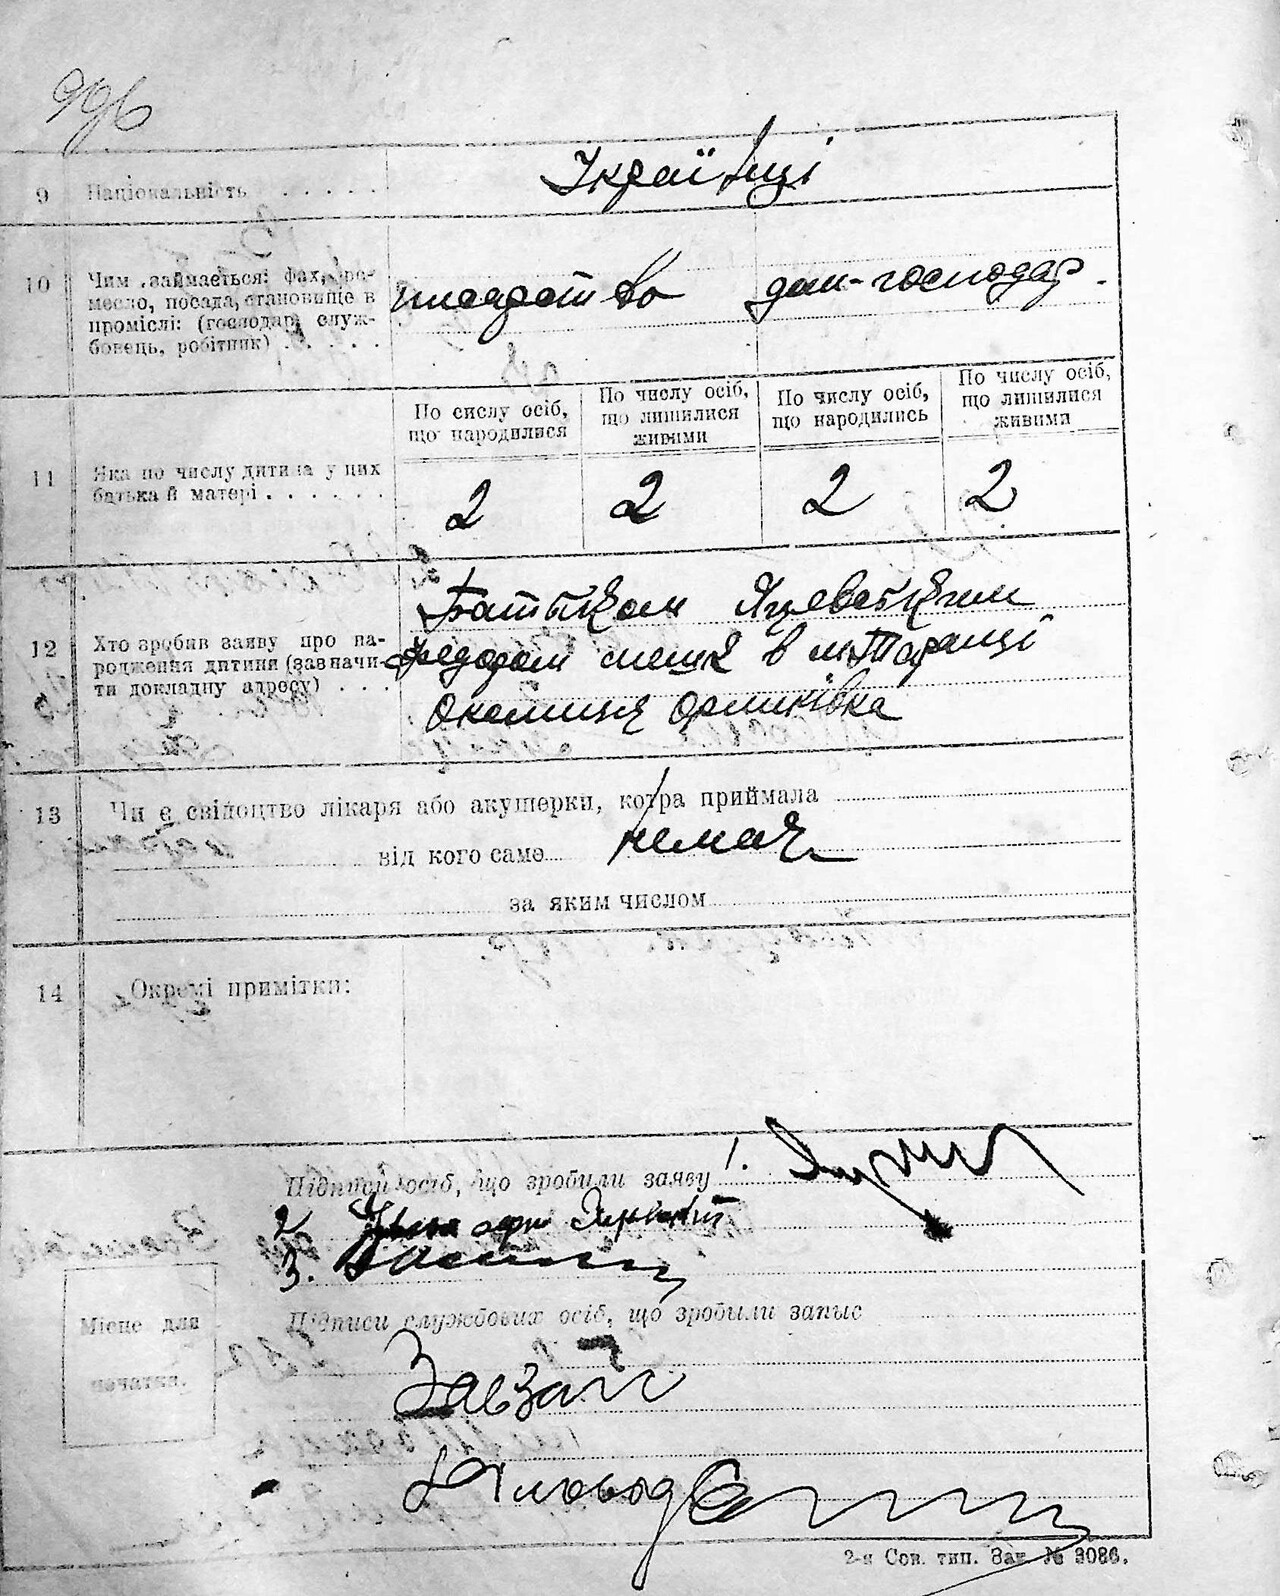 9 Національність Українці
10 Чим займається: фах, ремесло, посада, становище в проміслі: (господар, службовець, робітник) дом-господар.
По сислу осіб, що народилися
По числу осіб, що лишилися живими
По числу осіб, що народились
По числу осіб, що лишилися живими
11 Яка по числу дитина у цих батька й матері
2 2 2 2
12 Хто зробив заяву про народження дитини (зазначити докладну адресу)
Батьком
Федором меш в м Таращі
околиця
13 Чи є свідоцтво лікаря або акушерки, котра приймала
від кого саме немає
за яким числом
14 Окремі примітки:
Підписи осіб, що зробили заяву 1.
2
3.
Підписи службових осіб, що зробили запыс
Місце для печатки.
Завзаг
Діловод
2-я Сов. тип. Зак. № 3086.